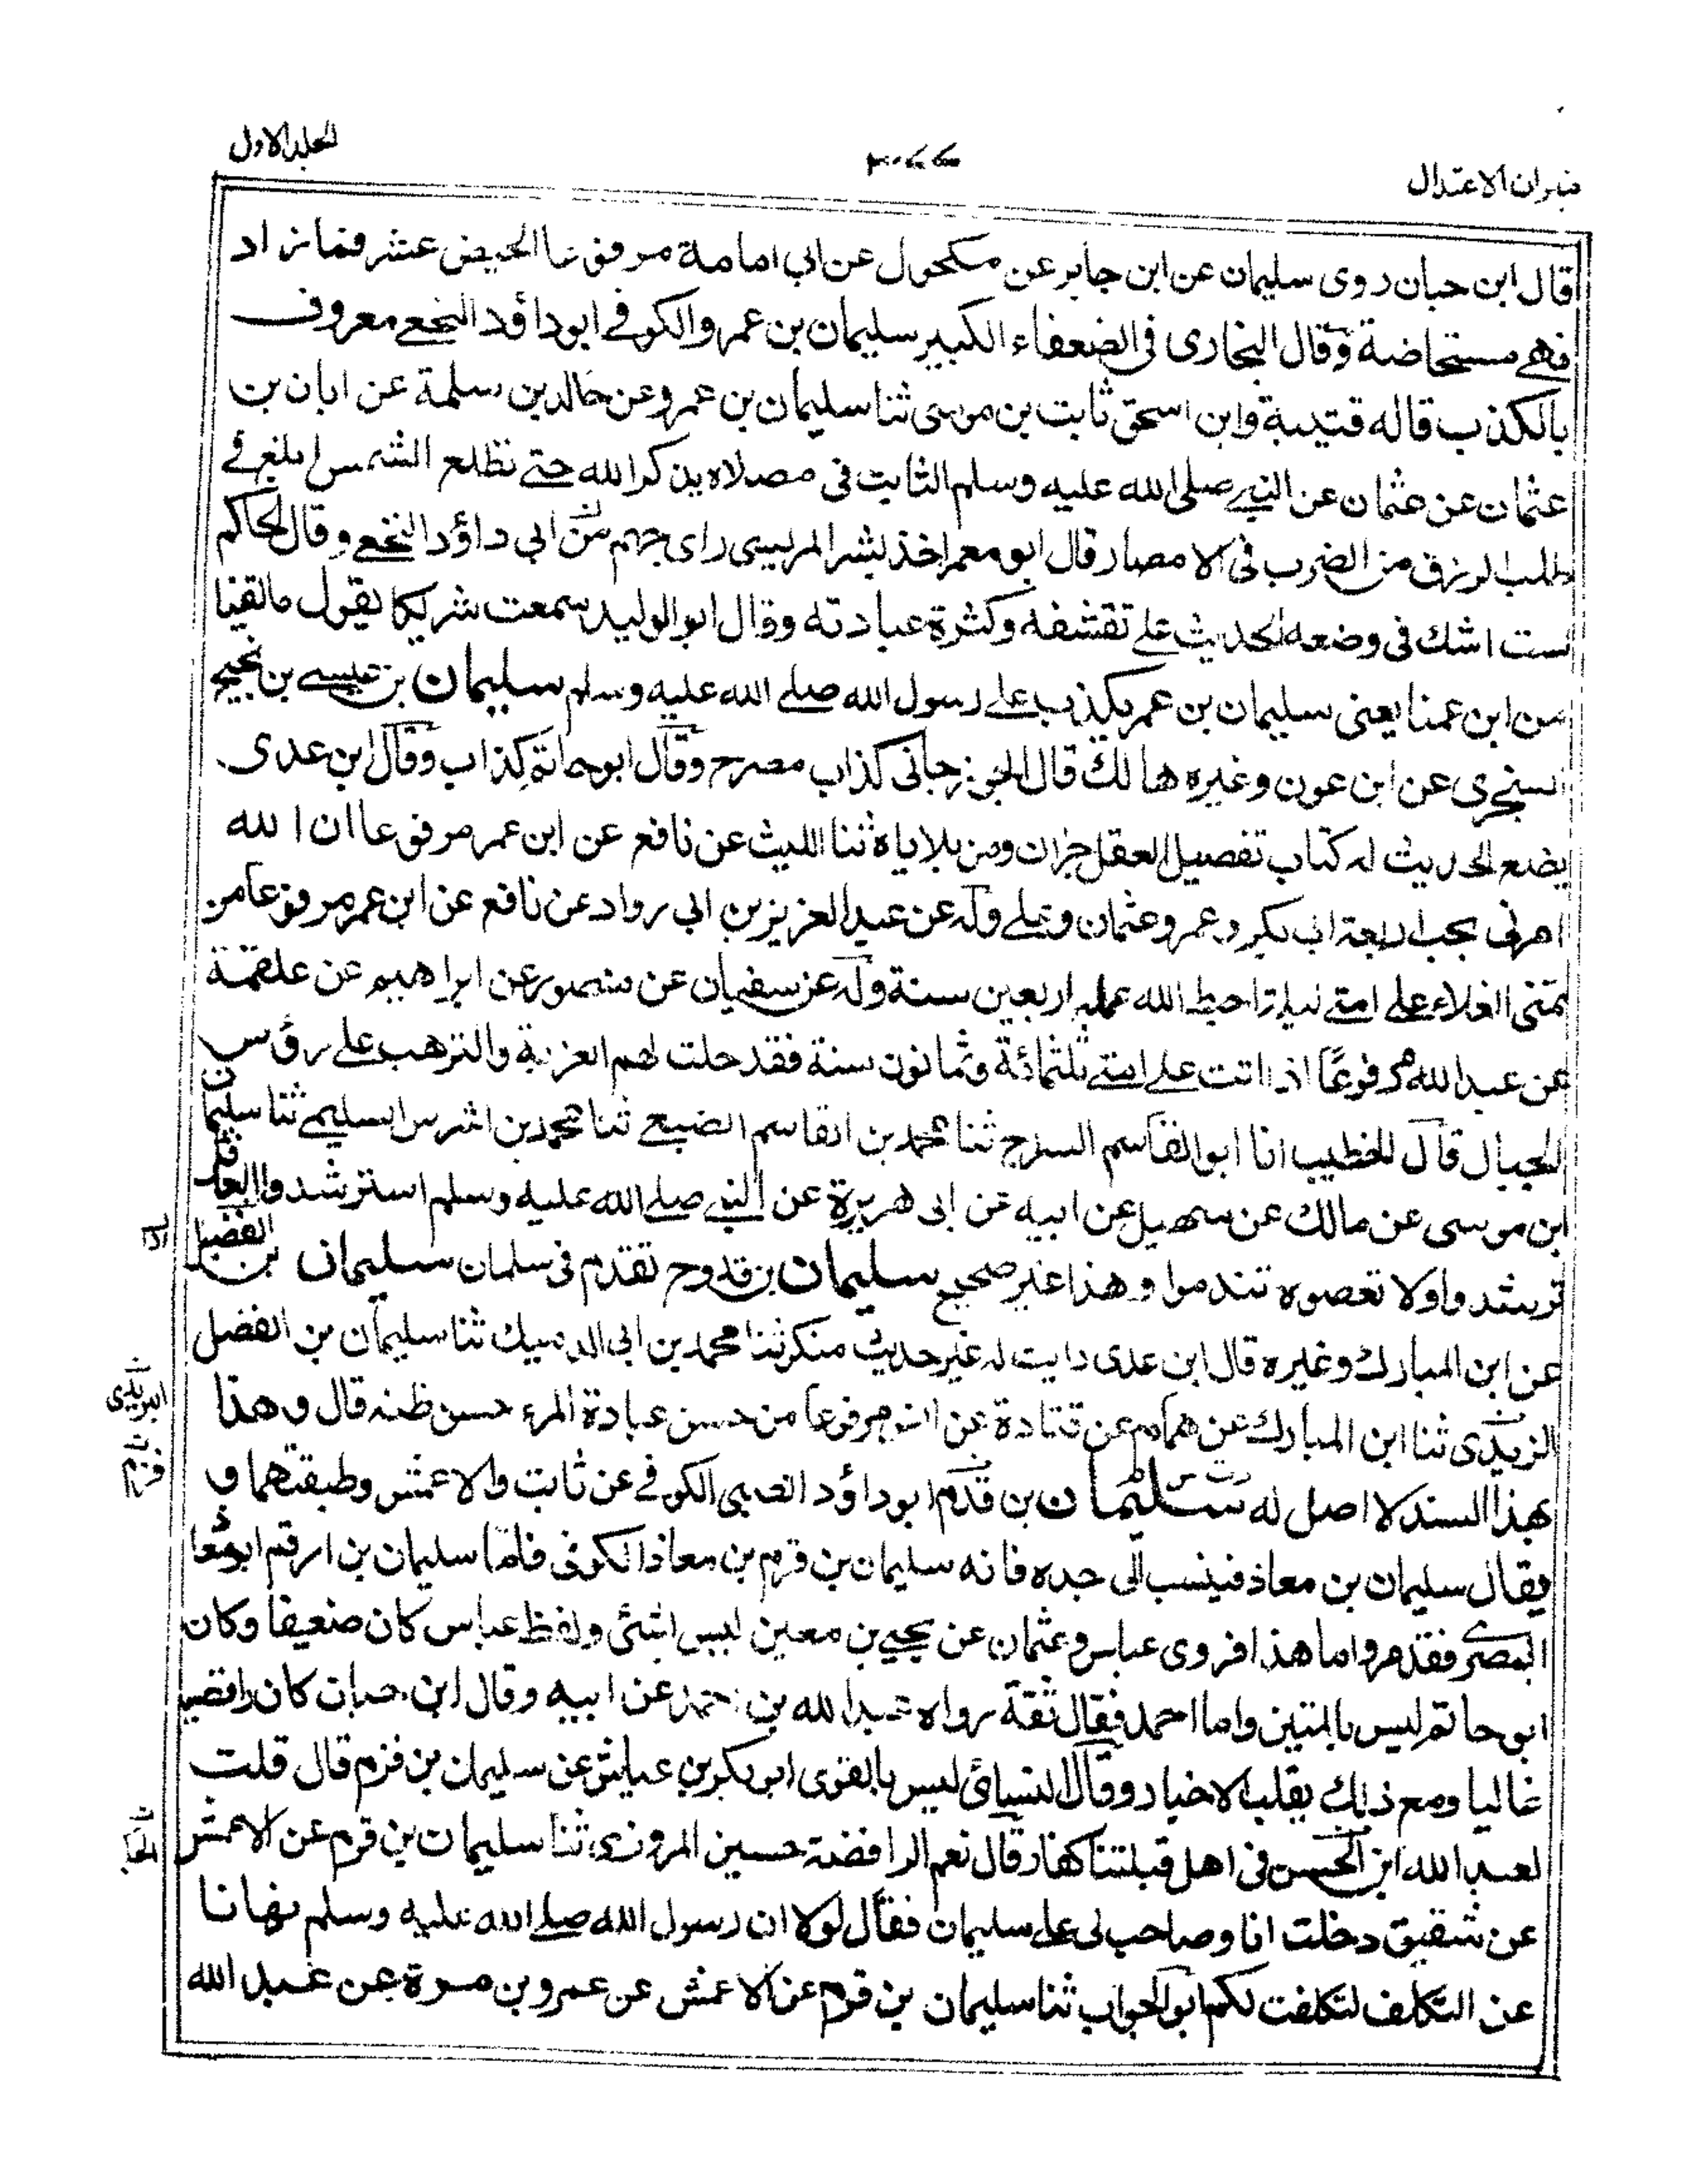 ميزان الاعتدال
المجلد الاول
قال ابن حبان روى سليمان عن ابن جابر عن مكحول عن ابي امامة مرفوعا الحيض عشر فما زاد
فهي مستحاضة وقال البخارى فى الضعفاء الكبير سليمان بن عمرو الكوفے ابوداؤد النخعے معروف
بالكذب قاله قتيبة وابن اسحق ثابت بن موسى ثنا سليمان بن عمرو عن خالد بن سلمة عن ابان بن
عثمان عن عثمان عن النبے صلى الله عليه وسلم الثابت فى مصلاه يذكر الله حتے تطلع الشمس ابلغ فے
طلب الرزق من الضرب فى الامصار قال ابو معمر اخذ بشر المريسى راى جهم من ابي داؤد النخعے وقال الحاكم
لست اشك فى وضعه الحديث علے تقشفه وكثرة عبادته وقال ابوالوليد سمعت شريكا يقول ما لقينا
من ابن عمنا يعنى سليمان بن عمر يكذب علے رسول الله صلے الله عليه وسلم سليمان بن عيسے بن نجيح
السنجرى عن ابن عون وغيره هالك قال الجوزجانى كذاب مصرح وقال ابوحاتم كذاب وقال ابن عدى
يضع الحديث له كتاب تفصيل العقل جزان ومن بلاياه ثنا الليث عن نافع عن ابن عمر مرفوعا ان الله
امرنى بحب اربعة ابى بكر وعمر وعثمان وعلے وله عن عبد العزيز بن ابى رواد عن نافع عن ابن عمر مرفوعا من
تمنى الغلاء على امتے ليلة احبط الله عمله اربعين سنة وله عن سفيان عن منصور عن ابراهيم عن علقمة
عن عبدالله مرفوعًا اذا اتت على امتے ثلثمائة وثمانون سنة فقد حلت لهم العزبة والترهب على رؤس
الجبال قال الخطيب انا ابوالقاسم السراج ثنا محمد بن القاسم الضبعے ثنا محمد بن اشرس السليمے ثنا سليمان
ابن موسى عن مالك عن سهيل عن ابيه عن ابى هريرة عن النبے صلے الله عليه وسلم استرشدوا العاقل
ترشدوا ولا تعصوه تندموا وهذا غير صحيح سليمان بن قدوح تقدم فى سلمان سليمان بن الفضيل
عن ابن المبارك وغيره قال ابن عدى رايت له غير حديث منكر ثنا محمد بن ابى الدميك ثنا سليمان بن الفضل
الزيدى ثنا ابن المبارك عن همام عن قتادة عن انس مرفوعا من حسن عبادة المرء حسن ظنه قال وهذا
بهذا السند لا اصل له سليمان بن قرم ابوداؤد الضبى الكوفے عن ثابت والاعمش وطبقتهما و
يقال سليمان بن معاذ فينسب الى جده فانه سليمان بن قرم بن معاذ الكوفى فاما سليمان بن ارقم ابو معاذ
البصرے فقد مر واما هذا فروى عباس وعثمان عن يحيے بن معين ليس بشئ ولفظ عباس كان ضعيفا وكان
ابوحاتم ليس بالمتين واما احمد فقال ثقة رواه عبدالله بن احمد عن ابيه وقال ابن حبان كان رافضيا
غاليا ومع ذلك يقلب الاخبار وقال النسائى ليس بالقوى ابو بكر بن عياش عن سليمان بن قرم قال قلت
لعبدالله ابن الحسن فى اهل قبلتنا كفار قال نعم الرافضة حسين المروزى ثنا سليمان بن قرم عن الاعمش
عن شقيق دخلت انا وصاحب لى على سليمان فقال لولا ان رسول الله صلے الله عليه وسلم نهانا
عن التكلف لتكلفت لكم ابو الجواب ثنا سليمان بن قرم عن الاعمش عن عمرو بن مرة عن عبد الله